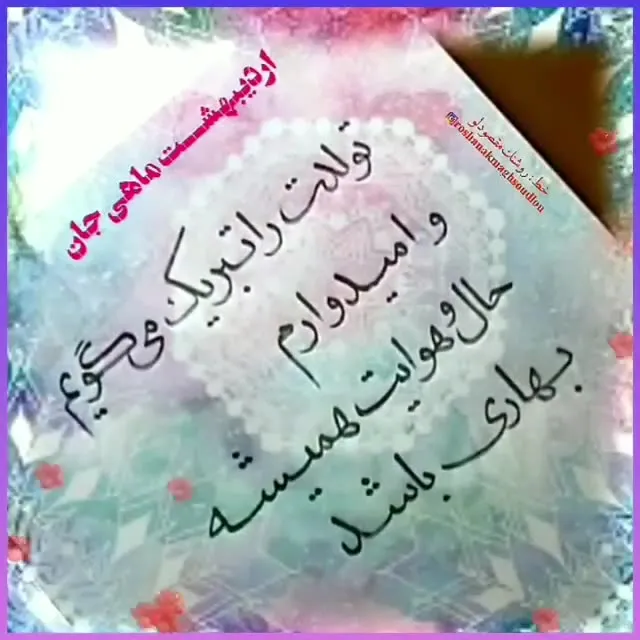 اردیبهشت ماهی جان
تولدت را تبریک می گویم
و امیدوارم
حال و هوایت همیشه
بهاری باشد
خط: روشنک مقصودلو
@roshanakmaghsoudlou